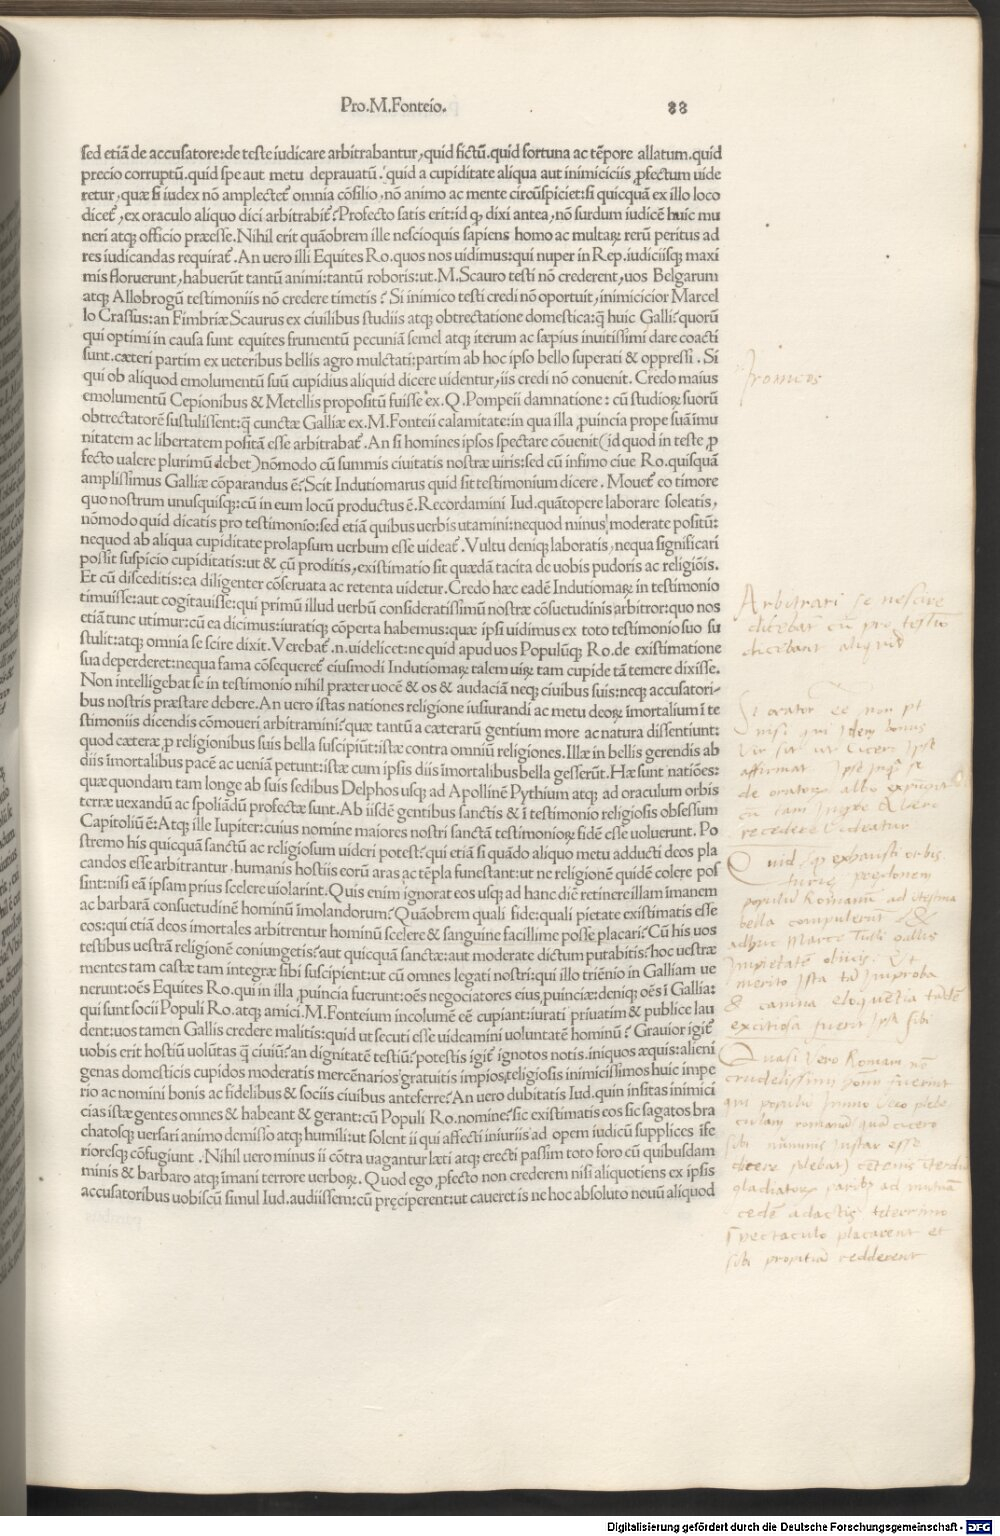 Pro.M.Fonteio.
88
sed etiã de accusatore:de teste iudicare arbitrabantur,quid fictũ.quid fortuna ac tẽpore allatum.quid
precio corruptũ.quid spe aut metu deprauatũ.quid a cupiditate aliqua aut inimiciciis ꝓfectum uide
retur,quæ si iudex nõ amplectet̃ omnia cõsilio,nõ animo ac mente circũspiciet:si quicquã ex illo loco
dicet̃,ex oraculo aliquo dici arbitrabit̃?Profecto satis erit:id ꝙ dixi antea,nõ surdum iudicẽ huic mu
neri atqꝫ officio præesse.Nihil erit quãobrem ille nescioquis sapiens homo ac multaꝝ rerũ peritus ad
res iudicandas requirat̃.An uero illi Equites Ro.quos nos uidimus:qui nuper in Rep.iudiciisqꝫ maxi
mis floruerunt,habuerũt tantũ animi:tantũ roboris:ut.M.Scauro testi nõ crederent,uos Belgarum
atqꝫ Allobrogũ testimoniis nõ credere timetis?Si inimico testi credi nõ oportuit,inimicicior Marcel
lo Crassus:an Fimbriæ Scaurus ex ciuilibus studiis atqꝫ obtrectatione domestica:q̃ huic Galli?quorũ
qui optimi in causa sunt equites frumentũ pecuniã semel atqꝫ iterum ac sæpius inuitissimi dare coacti
sunt.cæteri partim ex ueteribus bellis agro mulctati:partim ab hoc ipso bello superati & oppressi.Si
qui ob aliquod emolumentũ suũ cupidius aliquid dicere uidentur,iis credi nõ conuenit.Credo maius
emolumentũ Cepionibus & Metellis propositũ fuisse ex.Q.Pompeii damnatione:cũ studioꝝ suorũ
obtrectatorẽ sustulissent:q̃ cunctæ Galliæ ex.M.Fonteii calamitate:in qua illa ꝓuincia prope suã imu
nitatem ac libertatem positã esse arbitrabat̃.An si homines ipsos spectare cõuenit(id quod in teste,ꝓ
fecto ualere plurimũ debet)nõmodo cũ summis ciuitatis nostræ uiris:sed cũ infimo ciue Ro.quisquã
amplissimus Galliæ cõparandus ẽ?Scit Indutiomarus quid sit testimonium dicere.Mouet̃ eo timore
quo nostrum unusquisqꝫ:cũ in eum locũ productus ẽ.Recordamini Iud.quãtopere laborare soleatis,
nõmodo quid dicatis pro testimonio:sed etiã quibus uerbis utamini:nequod minus moderate positũ:
nequod ab aliqua cupiditate prolapsum uerbum esse uideat̃.Vultu deniqꝫ laboratis,nequa significari
possit suspicio cupiditatis:ut & cũ proditis,existimatio sit quædã tacita de uobis pudoris ac religiõis.
Et cũ disceditis:ea diligenter cõseruata ac retenta uidetur.Credo hæc eadẽ Indutiomaꝝ in testimonio
timuisse:aut cogitauisse:qui primũ illud uerbũ consideratissimũ nostræ cõsuetudinis arbitror:quo nos
etiã tunc utimur:cũ ea dicimus:iuratiqꝫ cõperta habemus:quæ ipsi uidimus ex toto testimonio suo su
stulit:atqꝫ omnia se scire dixit.Verebat̃.n.uidelicet:ne quid apud uos Populũqꝫ Ro.de existimatione
sua deperderet:nequa fama cõsequeret̃ eiusmodi Indutiomaꝝ talem uiꝝ tam cupide tã temere dixisse.
Non intelligebat se in testimonio nihil præter uocẽ & os & audaciã neqꝫ ciuibus suis:neqꝫ accusatori-
bus nostris præstare debere.An uero istas nationes religione iusiurandi ac metu deoꝝ ĩmortalium ĩ te
stimoniis dicendis cõmoueri arbitramini?quæ tantũ a cæterarũ gentium more ac natura dissentiunt:
quod cæteræ ꝓ religionibus suis bella suscipiũt:istæ contra omniũ religiones.Illæ in bellis gerendis ab
diis ĩmortalibus pacẽ ac ueniã petunt:istæ cum ipsis diis ĩmortalibus bella gesserũt.Hæ sunt natiões:
quæ quondam tam longe ab suis sedibus Delphos usqꝫ ad Apollinẽ Pythium atqꝫ ad oraculum orbis
terræ uexandũ ac spoliãdũ profectæ sunt.Ab iisdẽ gentibus sanctis & ĩ testimonio religiosis obsessum
Capitoliũ ẽ:Atqꝫ ille Iupiter:cuius nomine maiores nostri sanctã testimonioꝝ fidẽ esse uoluerunt.Po
stremo his quicquã sanctũ ac religiosum uideri potest?qui etiã si quãdo aliquo metu adducti deos pla
candos esse arbitrantur,humanis hostiis eorũ aras ac tẽpla funestant:ut ne religionẽ quidẽ colere pos
sint:nisi eã ipsam prius scelere uiolarint.Quis enim ignorat eos usqꝫ ad hanc diẽ retinere illam ĩmanem
ac barbarã consuetudinẽ hominũ ĩmolandorum?Quãobrem quali fide:quali pietate existimatis esse
eos:qui etiã deos imortales arbitrentur hominũ scelere & sanguine facillime posse placari?Cũ his uos
testibus uestrã religionẽ coniungetis?aut quicquã sanctæ:aut moderate dictum putabitis?hoc uestræ
mentes tam castæ tam integræ sibi suscipient:ut cũ omnes legati nostri:qui illo triẽnio in Galliam ue
nerunt:oẽs Equites Ro.qui in illa ꝓuincia fuerunt:oẽs negociatores eius ꝓuinciæ:deniqꝫ oẽs ĩ Gallia:
qui sunt socii Populi Ro.atqꝫ amici.M.Fonteium incolumẽ cẽ cupiant:iurati priuatim & publice lau
dent:uos tamen Gallis credere malitis:quid ut secuti esse uideamini uoluntatẽ hominũ?Grauior igit̃
uobis erit hostiũ uolũtas q̃ ciuiũ?an dignitatẽ testiũ?potestis igit̃ ignotos notis.iniquos æquis:alieni
genas domesticis cupidos moderatis mercẽnarios gratuitis impios,religiosis inimicissimos huic impe
rio ac nomini bonis ac fidelibus & sociis ciuibus anteferre?An uero dubitatis Iud.quin insitas inimici
cias istæ gentes omnes & habeant & gerant:cũ Populi Ro.nomine?sic existimatis eos sic sagatos bra
chatosqꝫ uersari animo demisso atqꝫ humili:ut solent ii qui affecti iniuriis ad opem iudicũ supplices ĩfe
rioresqꝫ cõfugiunt.Nihil uero minus ii cõtra uagantur læti atqꝫ erecti passim toto foro cũ quibusdam
minis & barbaro atqꝫ ĩmani terrore uerboꝝ.Quod ego ꝓfecto non crederem nisi aliquotiens ex ipsis
accusatoribus uobiscũ simul Iud.audiissem:cũ pręciperent:ut caueretis ne hoc absoluto nouũ aliquod
Ironicos
Arbitrari se nescire
dicebant cũ pro testimo
dicebant aliquid
Si orator ẽe non pt
nisi qui idem bonus
vir sit ut Cicero ipse
affirmat
recedere videatur
Quid
populũ Romanũ ad
bella compulerunt
adhuc Marce Tulli
impietatẽ
merito ista
eloquẽtia
fuerit sibi
Quasi vero Romani nõ
crudelissimi fuerint
qui populũ
culam romanã quã cicero
esse
dicere
gladiatoꝝ ad mutuã
cedẽ adactis teterrimo
spectaculo placarent et
sibi propitiũ redderent
Digitalisierung gefördert durch die Deutsche Forschungsgemeinschaft - DFG